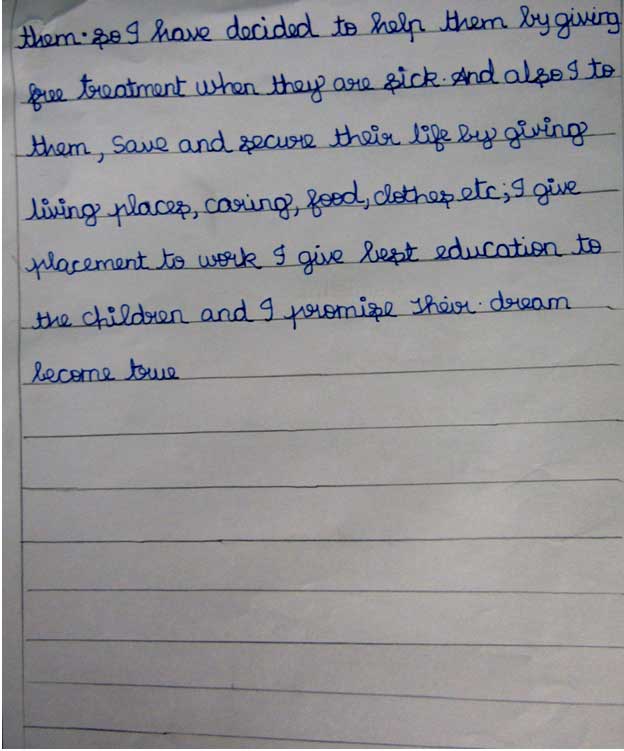 them. so I have decided to help them by giving
free treatment when they are sick. And also I to
them, save and secure their life by giving
living places, caring, food, clothes etc; I give
placement to work I give best education to
the children and I promise their. dream
become true